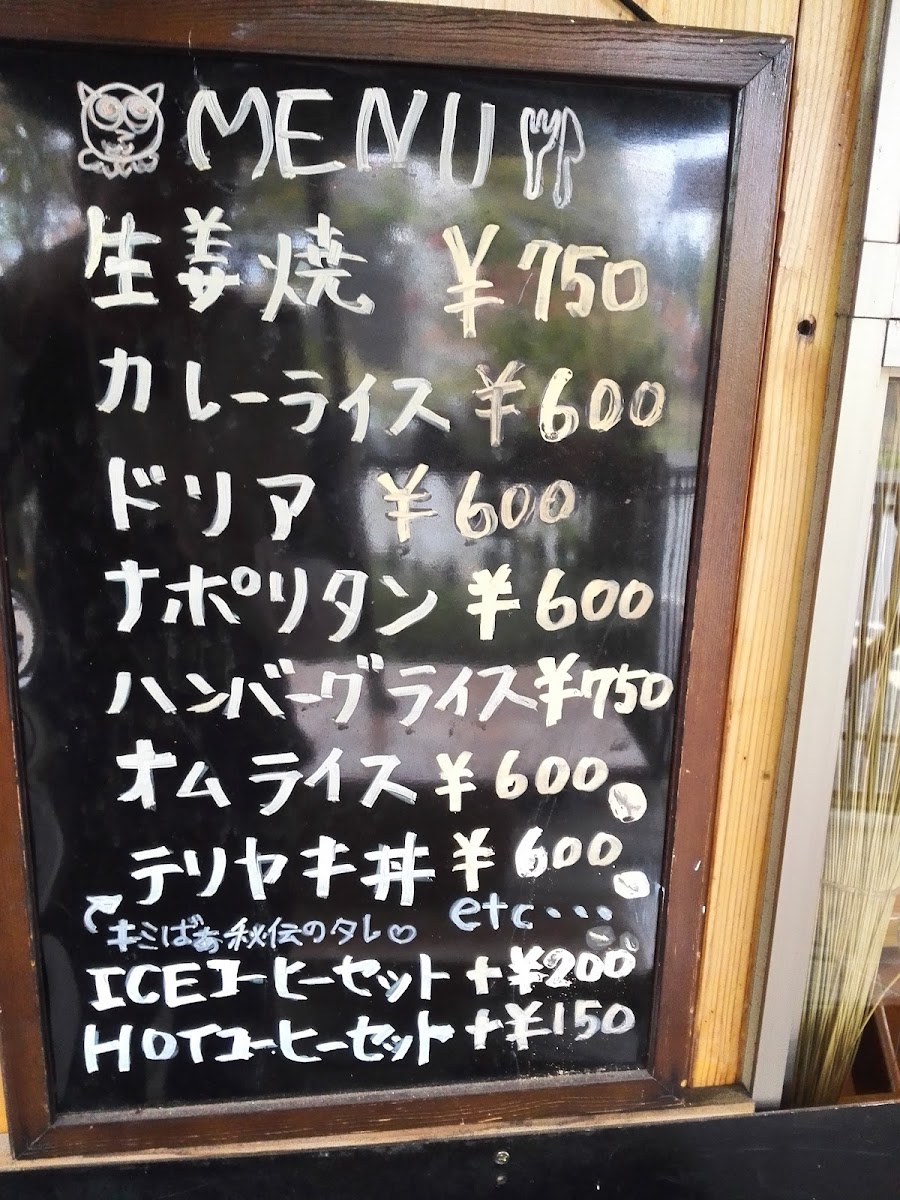 MENU
生姜焼 ¥750
カレーライス ¥600
ドリア ¥600
ナポリタン ¥600
ハンバーグライス ¥750
オムライス ¥600
テリヤキ丼 ¥600
キミばぁ秘伝のタレ♡ etc・・・
ICEコーヒーセット +¥200
HOTコーヒーセット +¥150